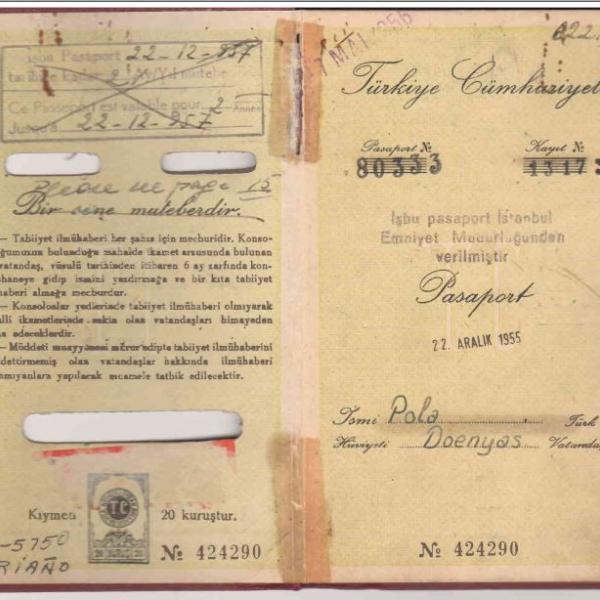 İşbu Pasaport 22-12-957
tarihine kadar 2 Ay/Yıl mutebe
Ce Passeport est valable pour 2 Années
Jusqu'à 22-12-957
page 15
Bir sene muteberdir.
— Tabiiyet ilmühaberi her şahıs için mecburidir. Konso-
oğumuzun bulunduğu mahalde ikamet arzusunda bulunan
vatandaş, vüsulü tarihinden itibaren 6 ay zarfında kon-
haneye gidip ismini yazdırmağa ve bir kıta tabiiyet
haberi almağa mecburdur.
— Konsoloslar yedlerinde tabiiyet ilmühaberi olmıyarak
alli ikametlerinde sakin olan vatandaşları himayeden
na edeceklerdir.
— Müddeti muayyenesi mürur edipte tabiiyet ilmühaberini
dettirmemiş olan vatandaşlar hakkında ilmühaberi
mıyanlara yapılacak muamele tatbik edilecektir.
Kıymeti 20 kuruştur.
TC
-5750
RIAÑO
№ 424290
MAI 1956
Türkiye Cümhuriyet
Pasaport № Kayıt №
80333 1317
İşbu pasaport İstanbul
Emniyet Müdürlüğünden
verilmiştir
Pasaport
22 ARALIK 1955
İsmi Pola Türk
Hüviyeti Doenyas Vatanda
№ 424290